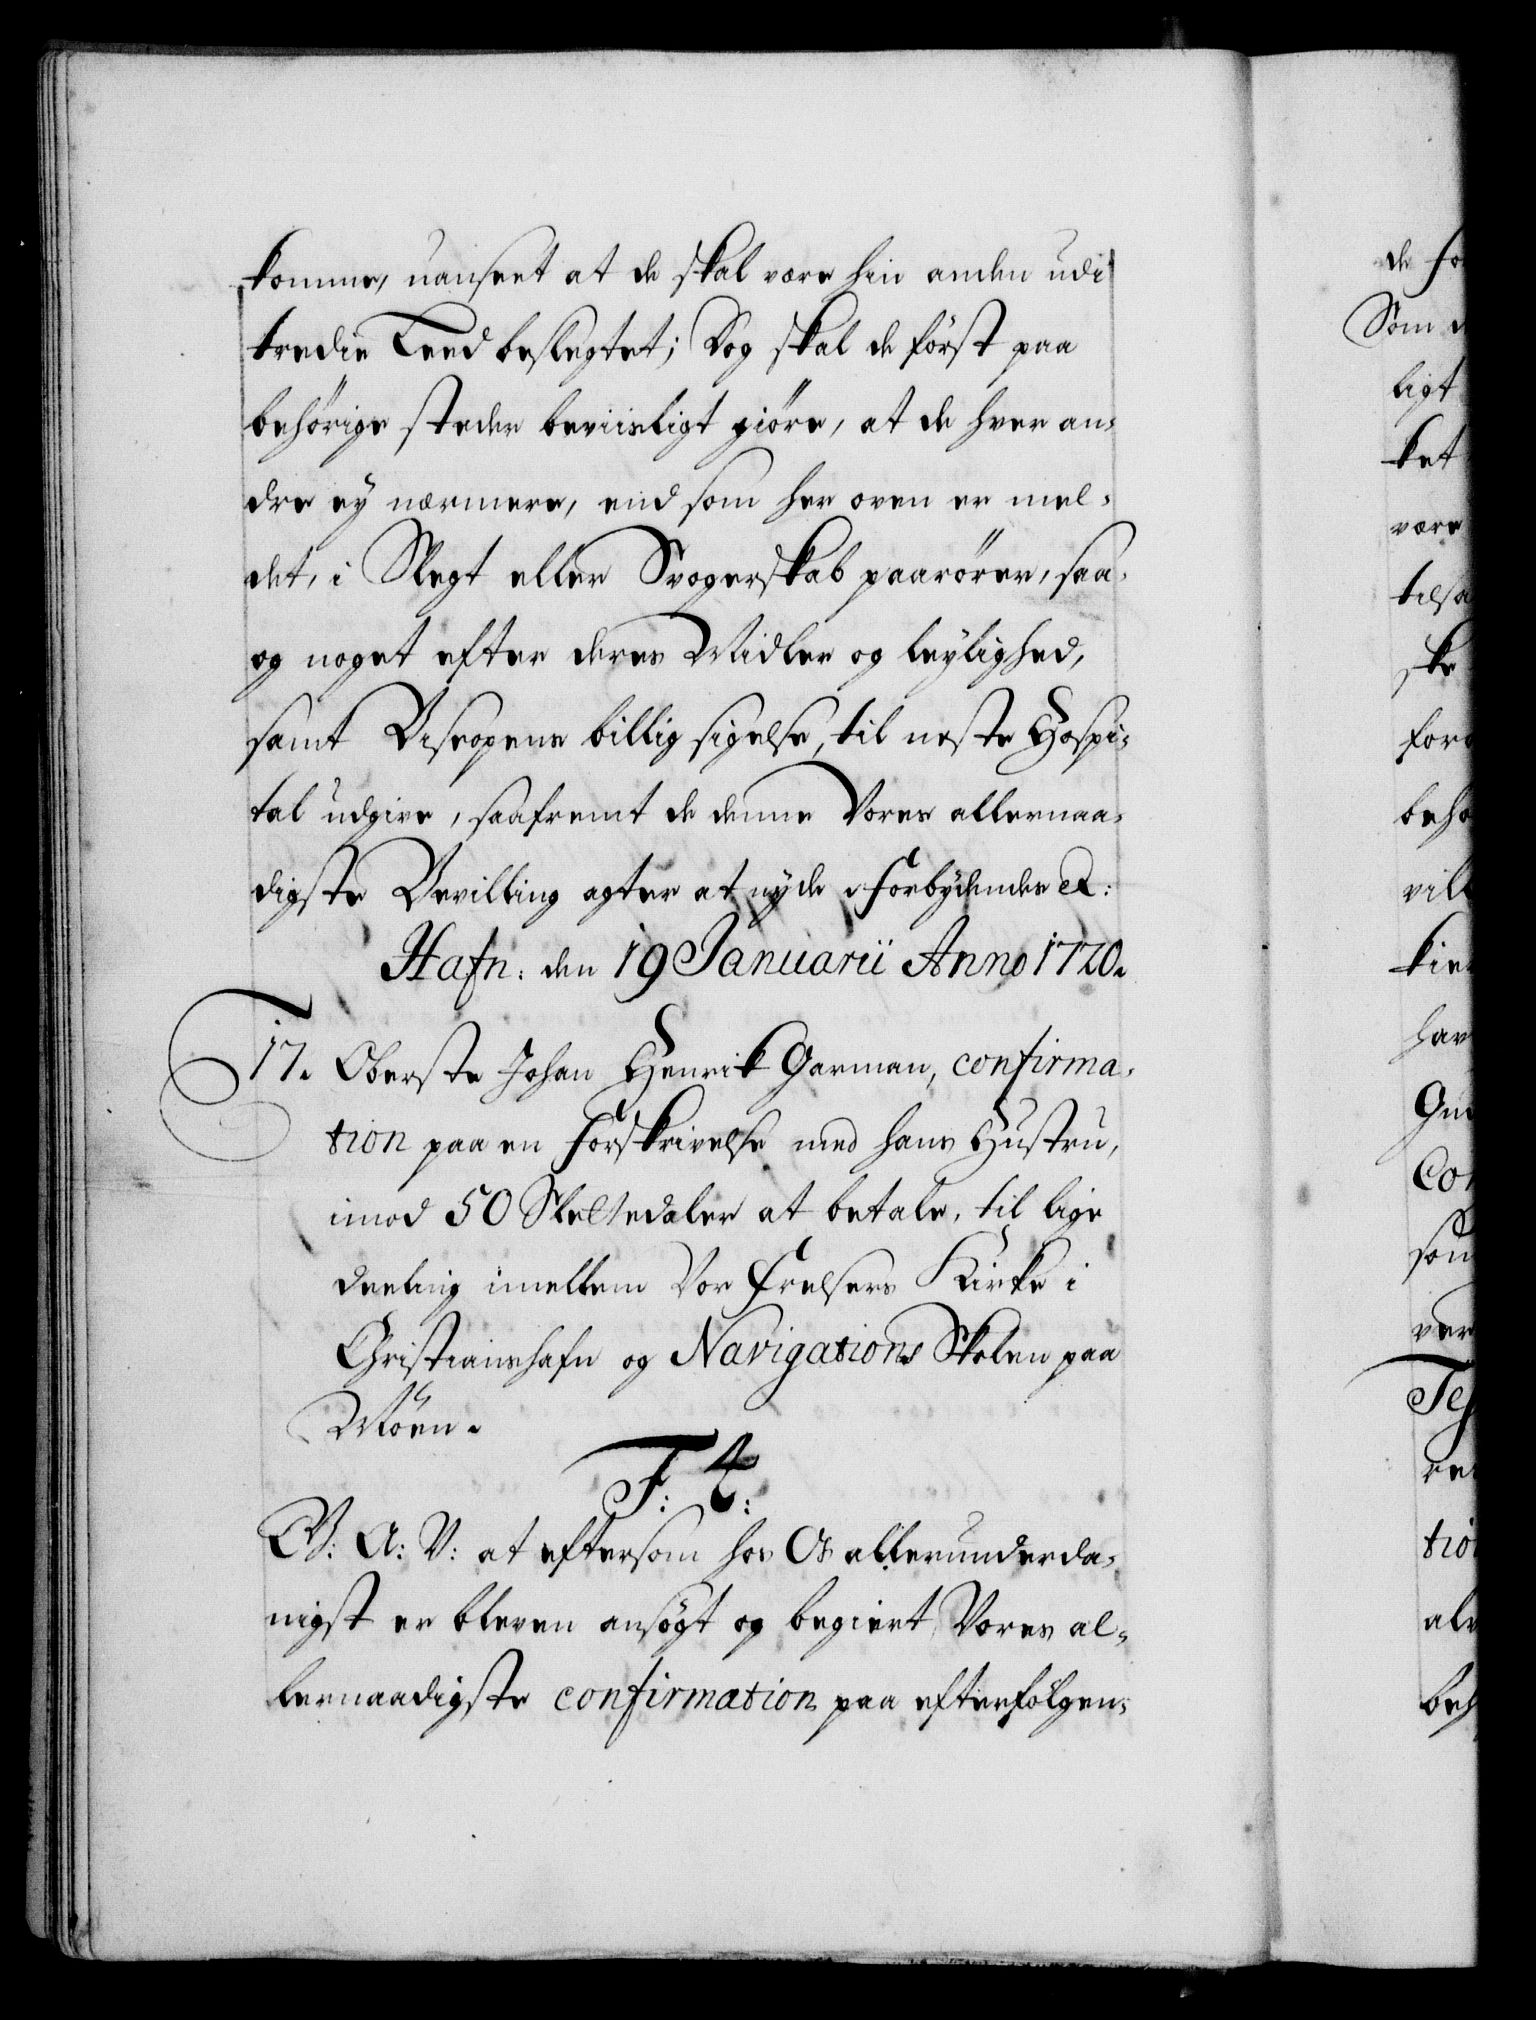 komme, uanseet at de skal være hin anden udi
tredie Leed beslegtet; Dog skal de først paa
behørige steder beviisligt giøre, at de hver an-
dre ey nærmere, end som her oven er mel-
det, i Slegt eller Svogerskab paarører, saa-
og noget efter deres Midler og leylighed,
samt Biscopens billig sigelse, til neste Hospi-
tal udgive, saafremt de denne Vores allernaa-
digste Bevilling agter at nyde. Forbydendes etc:
Hafn: den 19 Januarii Anno 1720.
17. Oberste Johan Henrik Garman, confirma-
tion paa en Forskrivelse med hans Hustru,
imod 50 Slettedaler at betale, til lige
deeling imellem Vor Frelsers Kirke i
Christianshafn og Navigations Skolen paa
Møen.
F: 4:
G: A: V: at eftersom hos Os allerunderda-
nigst er bleven ansøgt og begiert Vores al-
lernaadigste confirmation paa efterfølgen-
de
Som
ligt
ket
være
ske